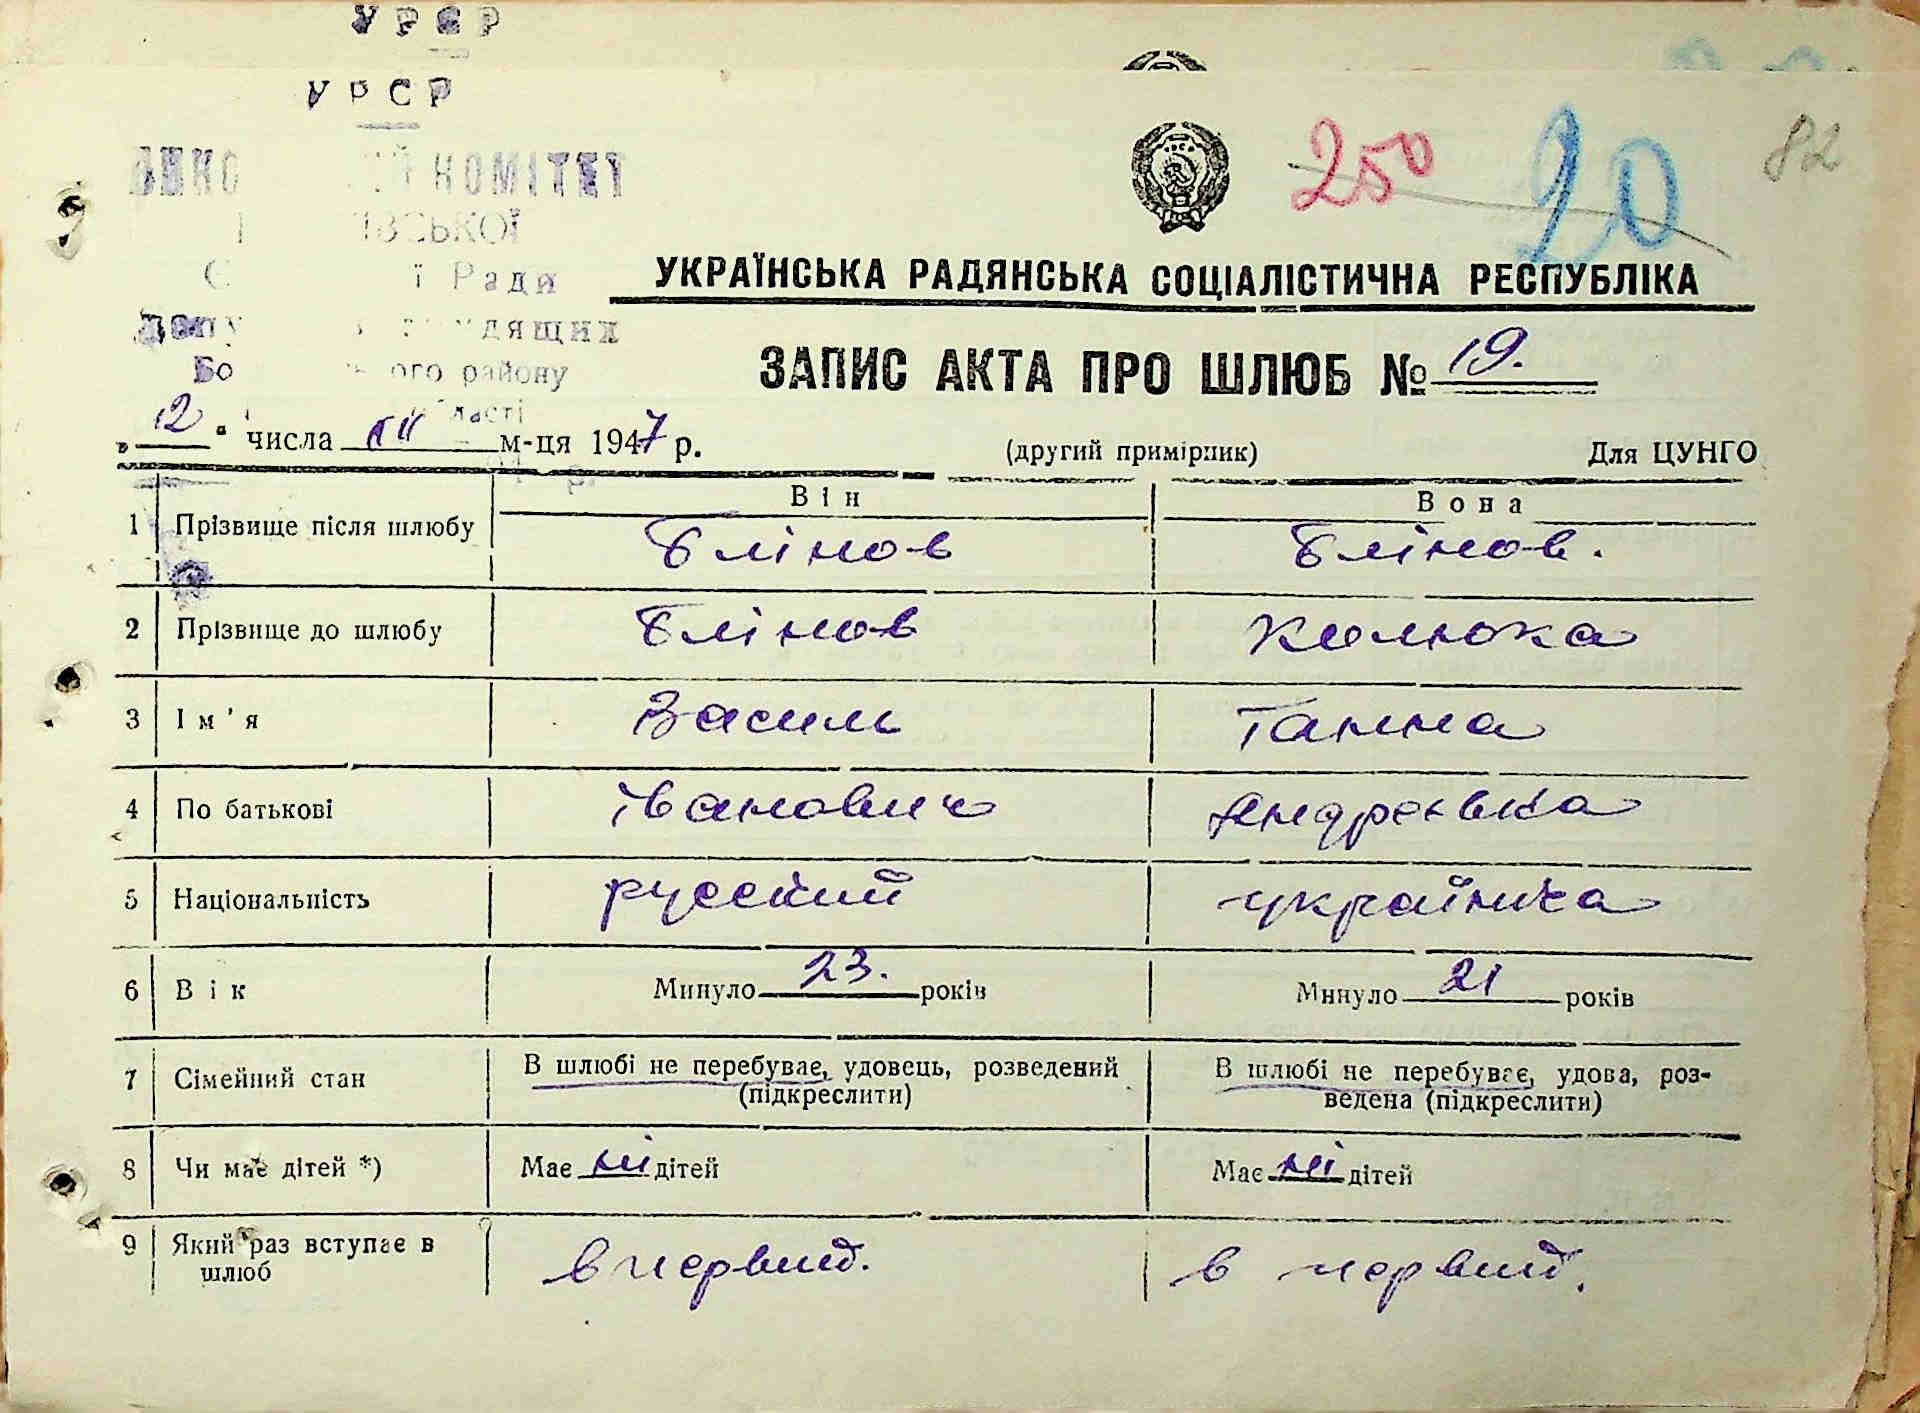 УРСР
УРСР
КОМІТЕТ
Ради
району
250 20 82
УКРАЇНСЬКА РАДЯНСЬКА СОЦІАЛІСТИЧНА РЕСПУБЛІКА
ЗАПИС АКТА ПРО ШЛЮБ № 19.
„12“ числа XII м-ця 1947 р. (другий примірник) Для ЦУНГО
Він Вона
1 Прізвище після шлюбу Блінов Блінов.
2 Прізвище до шлюбу Блінов Колюка
3 Ім'я Василь Ганна
4 По батькові Іванович Андреівна
5 Національність русский українка
6 Вік Минуло 23. років Минуло 21 років
7 Сімейний стан В шлюбі не перебуває, удовець, розведений (підкреслити) В шлюбі не перебуває, удова, роз-
ведена (підкреслити)
8 Чи має дітей *) Має ні дітей Має ні дітей
9 Який раз вступає в шлюб в первий. в первий.